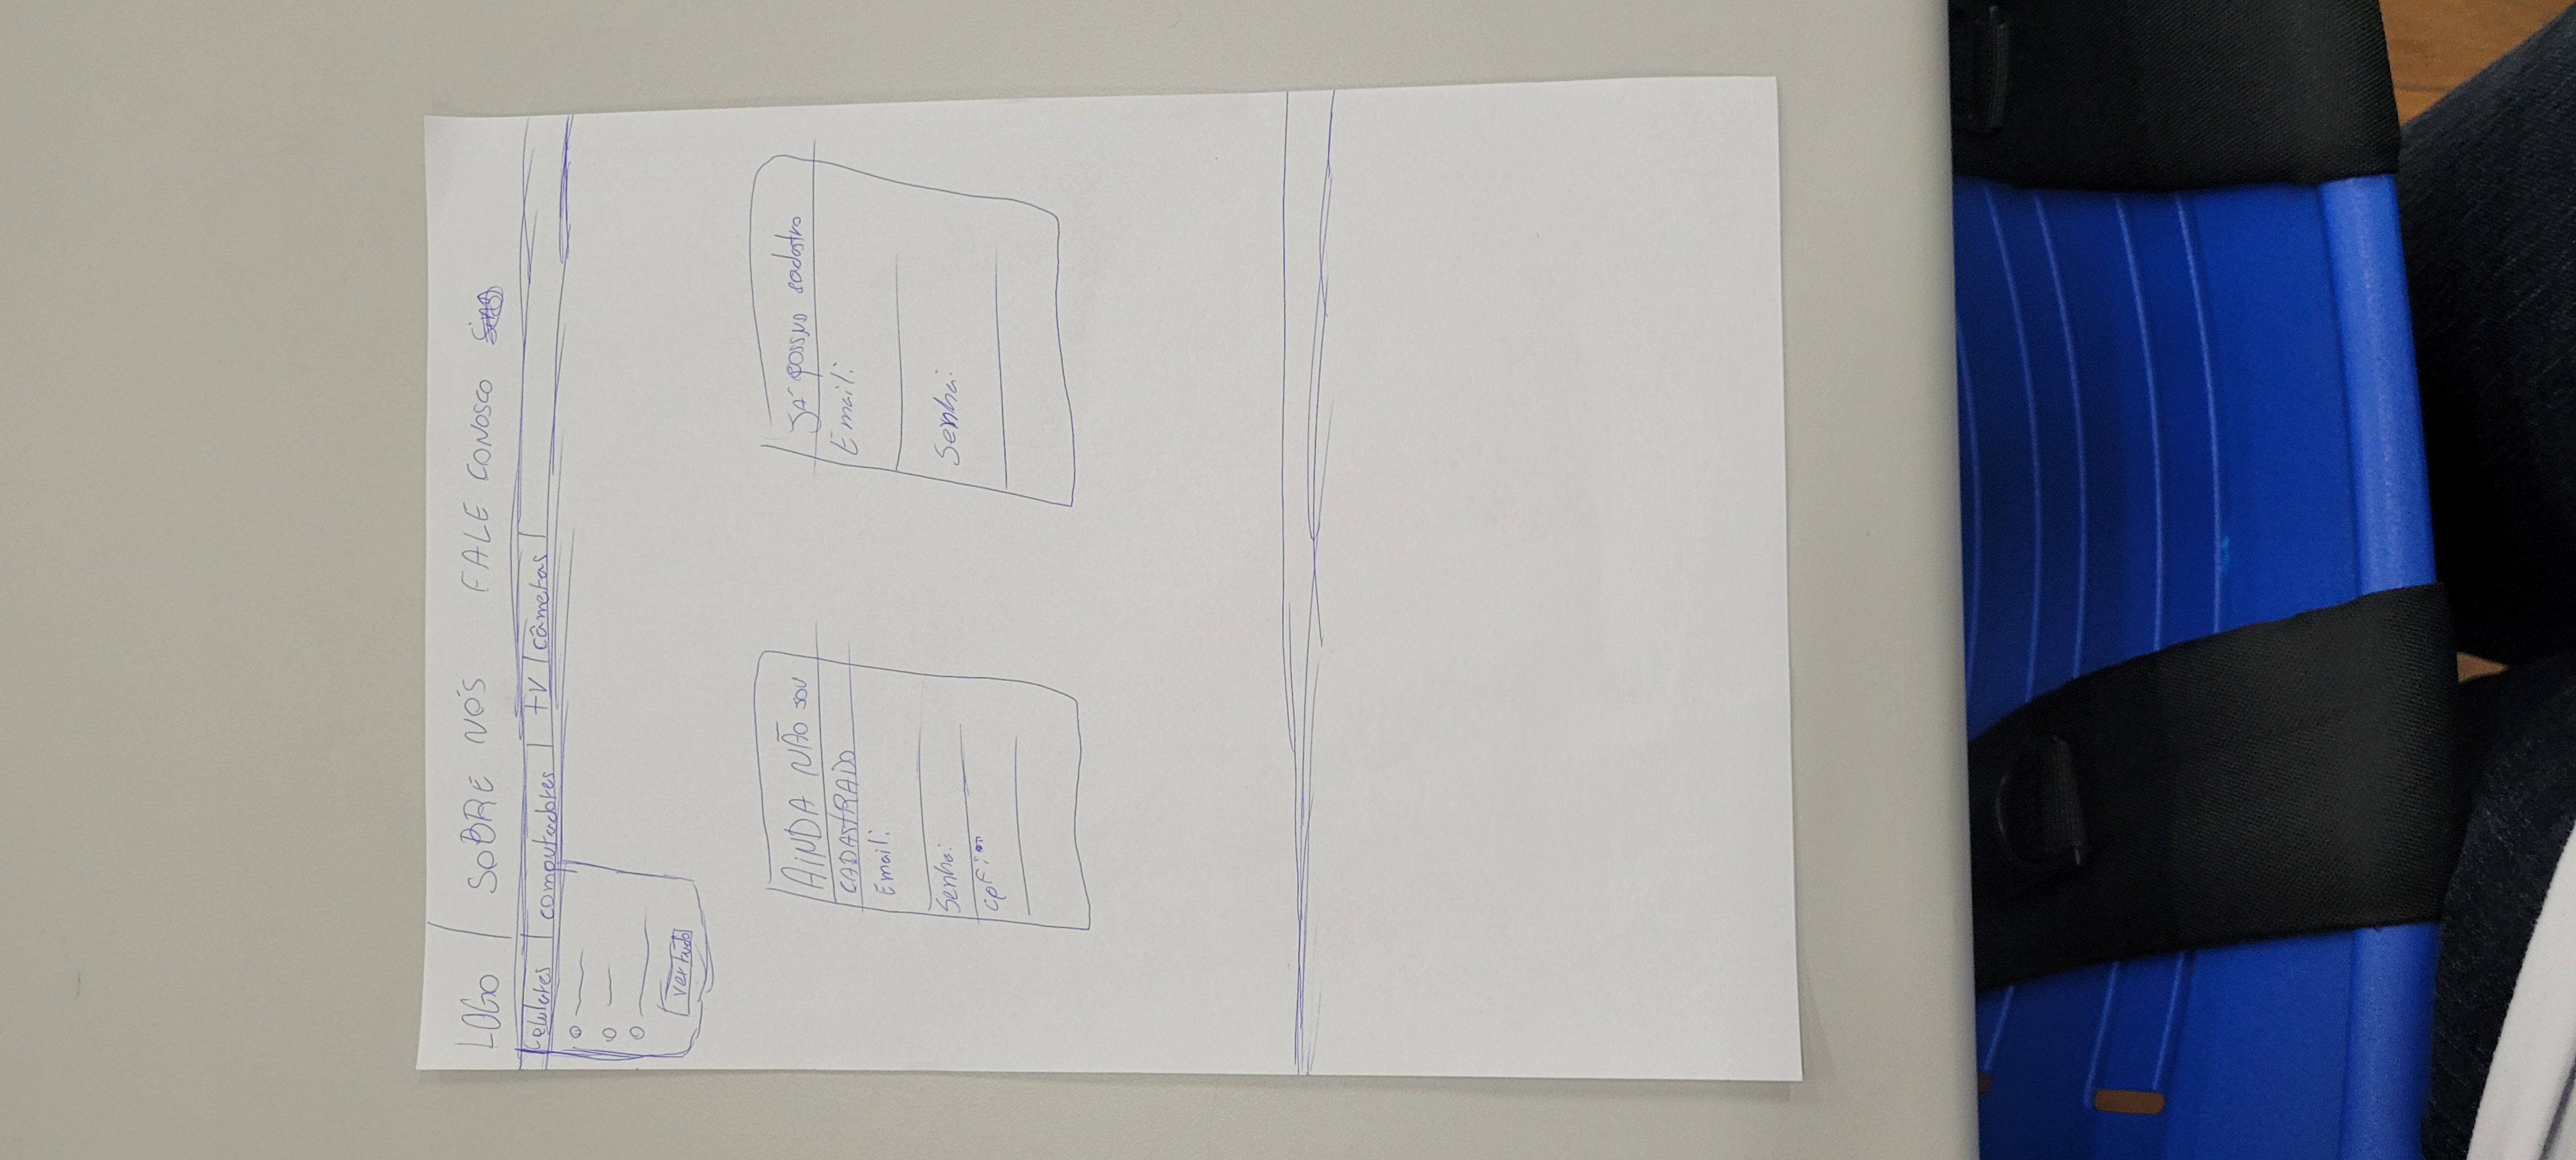 LOGO SOBRE NÓS FALE CONOSCO
Celulares computadores TV câmeras
ver tudo
AINDA NÃO SOU
CADASTRADO
Email:
Senha:
CPF:
JÁ possuo cadastro
Email:
Senha: